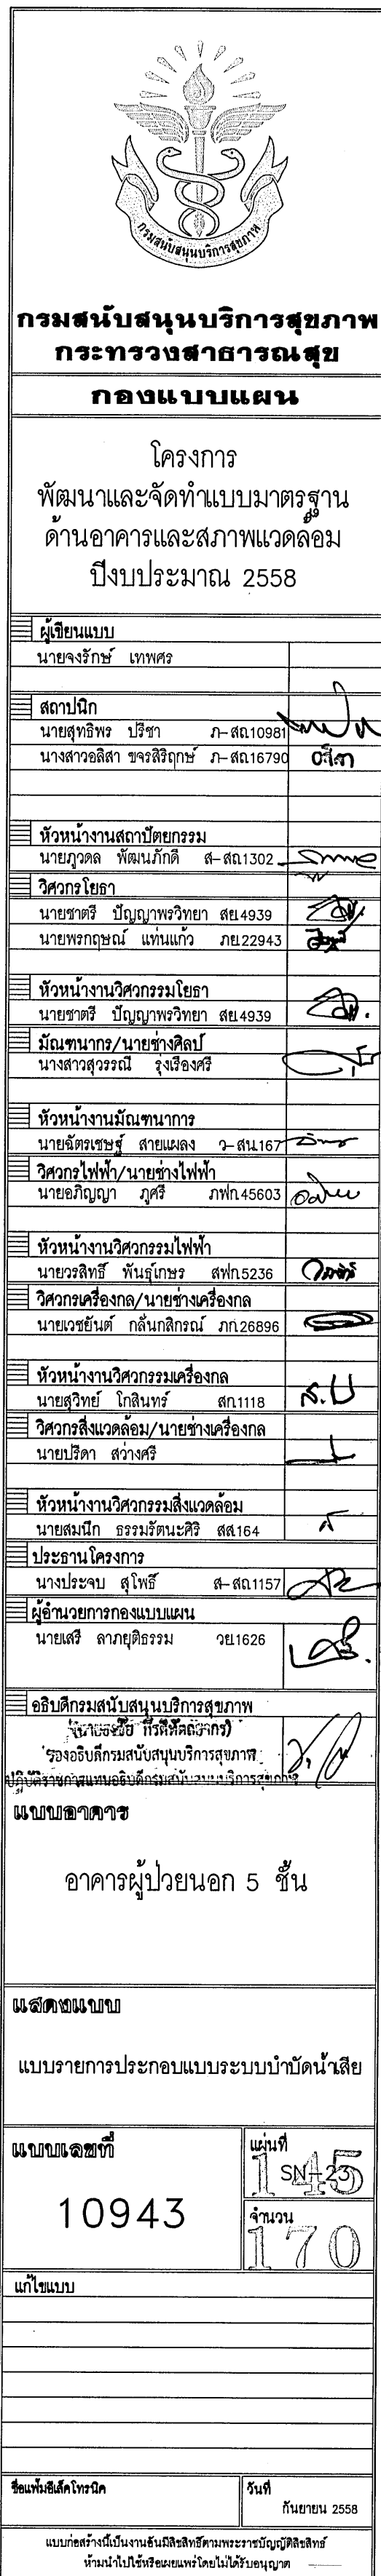 กรมสนับสนุนบริการสุขภาพ
กรมสนับสนุนบริการสุขภาพ
กระทรวงสาธารณสุข
กองแบบแผน
โครงการ
พัฒนาและจัดทำแบบมาตรฐาน
ด้านอาคารและสภาพแวดล้อม
ปีงบประมาณ 2558
ผู้เขียนแบบ
นายจงรักษ์ เทพศร
สถาปนิก
นายสุทธิพร ปรีชา ภ-สถ.10981
นางสาวอลิสา ขจรสิริฤกษ์ ภ-สถ.16790
หัวหน้างานสถาปัตยกรรม
นายภูวดล พัฒนภักดี ส-สถ.1302
วิศวกรโยธา
นายชาตรี ปัญญาพรวิทยา สย.4939
นายพรกฤษณ์ แท่นแก้ว ภย.22943
หัวหน้างานวิศวกรรมโยธา
นายชาตรี ปัญญาพรวิทยา สย.4939
มัณฑนากร/นายช่างศิลป์
นางสาวสุวรรณี รุ่งเรืองศรี
หัวหน้างานมัณฑนาการ
นายฉัตรเชษฐ์ สายแผลง ว-สน.167
วิศวกรไฟฟ้า/นายช่างไฟฟ้า
นายอภิญญา ภูศรี ภฟก.45603
หัวหน้างานวิศวกรรมไฟฟ้า
นายวรสิทธิ์ พันธุ์เกษร สฟก.5236
วิศวกรเครื่องกล/นายช่างเครื่องกล
นายเวชยันต์ กลั่นกสิกรณ์ ภก.26896
หัวหน้างานวิศวกรรมเครื่องกล
นายสุวิทย์ โกสินทร์ สก.1118
วิศวกรสิ่งแวดล้อม/นายช่างเครื่องกล
นายปรีดา สว่างศรี
หัวหน้างานวิศวกรรมสิ่งแวดล้อม
นายสมนึก ธรรมรัตนะศิริ สส.164
ประธานโครงการ
นางประจบ สุโพธิ์ ส-สถ.1157
ผู้อำนวยการกองแบบแผน
นายเสรี ลาภยุติธรรม วย.1626
อธิบดีกรมสนับสนุนบริการสุขภาพ
รองอธิบดีกรมสนับสนุนบริการสุขภาพ
ปฏิบัติราชการแทนอธิบดีกรมสนับสนุนบริการสุขภาพ
แบบอาคาร
อาคารผู้ป่วยนอก 5 ชั้น
แสดงแบบ
แบบรายการประกอบแบบระบบบำบัดน้ำเสีย
แบบเลขที่
10943
แผ่นที่
145
SN-23
จำนวน
170
แก้ไขแบบ
ชื่อแฟ้มอิเล็คโทรนิค
วันที่
กันยายน 2558
แบบก่อสร้างนี้เป็นงานอันมีลิขสิทธิ์ตามพระราชบัญญัติลิขสิทธิ์
ห้ามนำไปใช้หรือเผยแพร่โดยไม่ได้รับอนุญาต